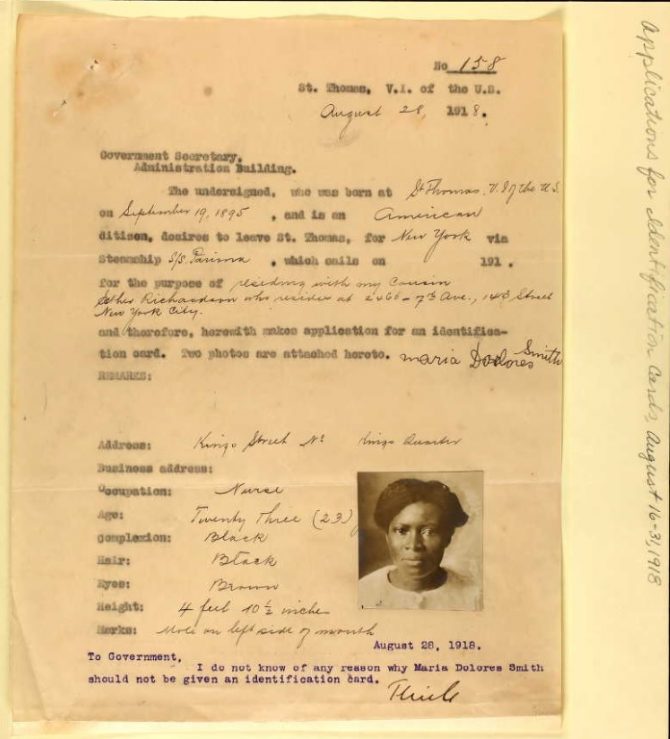 No 158
St. Thomas, V.I. of the U.S.
August 28, 1918.
Government Secretary,
Administration Building.
The undersigned, who was born at St Thomas. V. I of the U.S.
on September 19, 1895 , and is an American
citizen, desires to leave St. Thomas, for New York via
Steamship S/S. Parima , which sails on 191 .
for the purpose of residing with my Cousin
Esther Richardson who resides at 2466 - 7th Ave., 143 Street
New York City.
and therefore, herewith makes application for an identifica-
tion card. Two photos are attached hereto. maria Dolores Smith
REMARKS:
Address: Kings Street Kings Quarter
Business address:
Occupation: Nurse
Age: Twenty three (23)
Complexion: Black
Hair: Black
Eyes: Brown
Height: 4 feet 10 1/2 inches
Marks: Mole on left side of mouth
August 28, 1918.
To Government,
I do not know of any reason why Maria Dolores Smith
should not be given an identification card.
Applications for Identification Cards, August 16-31, 1918